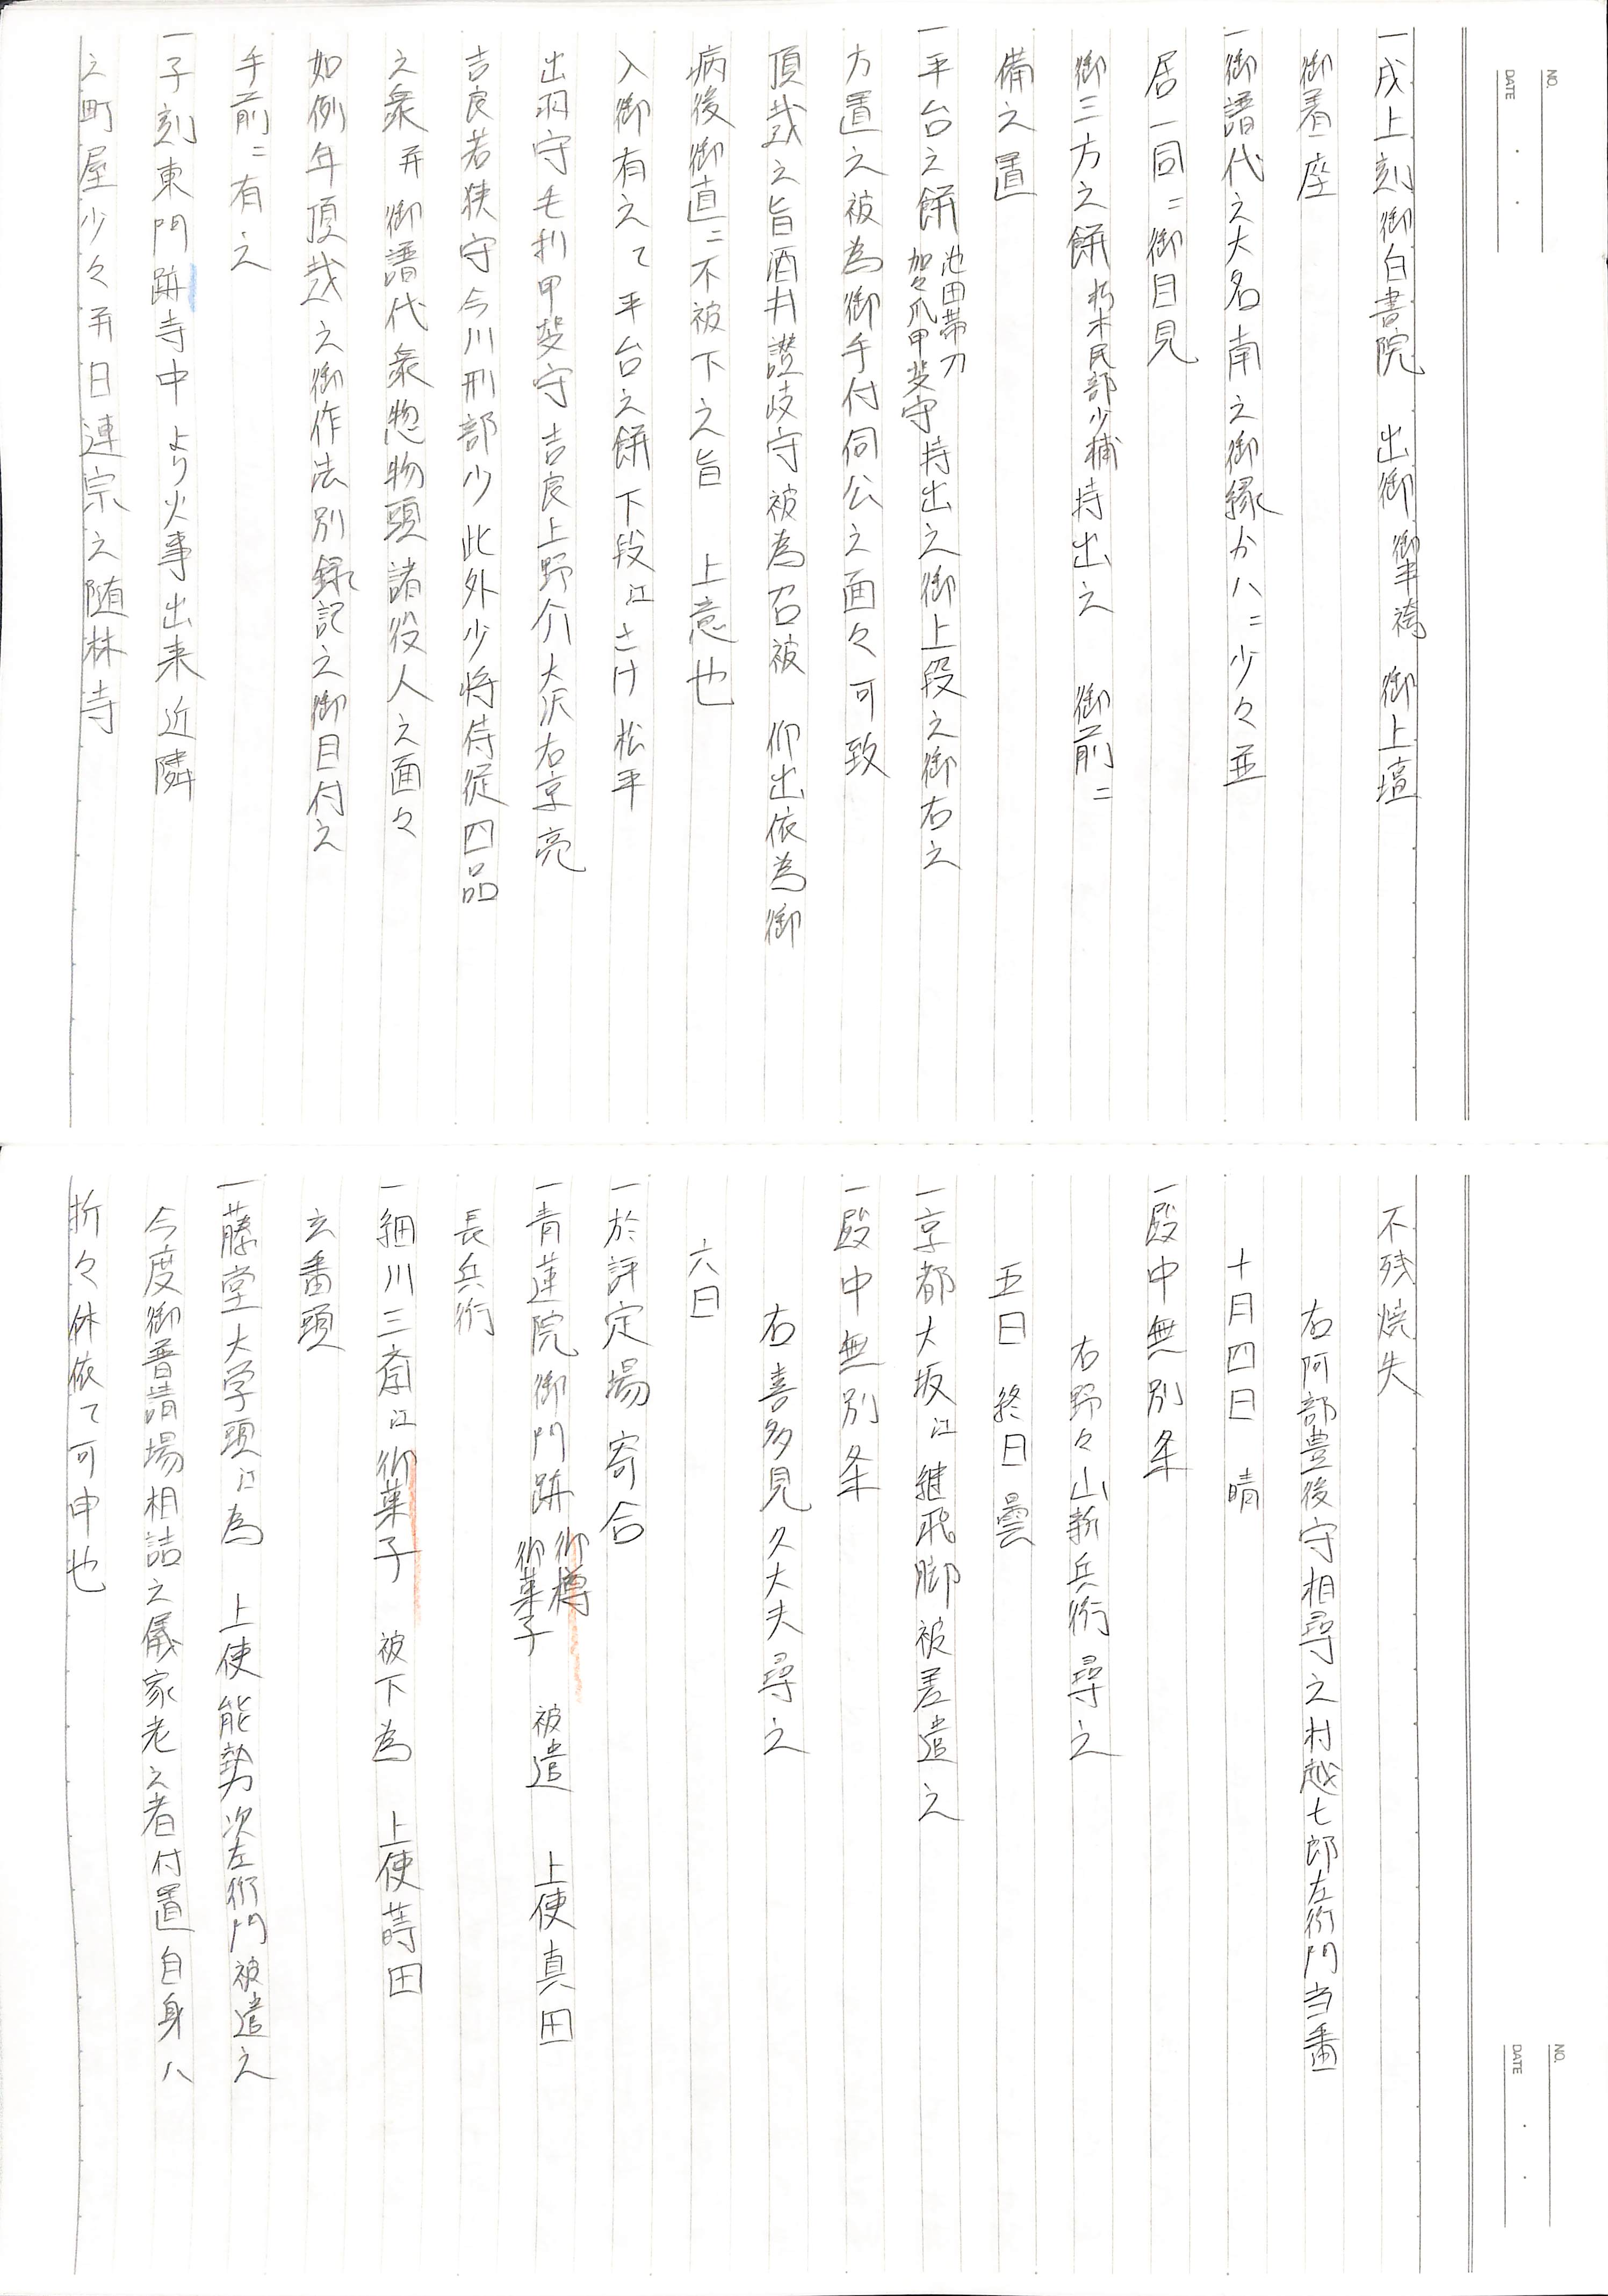 NO.
DATE
一戌上刻御白書院　出御 御半袴　御上壇
御着座
一御譜代之大名南之御縁かハニ少々並
居一同ニ御目見
御三方之餅 朽木民部少補 持出之　御前ニ
備之置
一平台之餅 池田帯刀 加々爪甲斐守 持出之御上段之御右之
方置之被為御手付伺公之面々可致
頂戴之旨酒井讃岐守被為召被　仰出依為御
病後御直ニ不被下之旨　上意也
入御有之て平台之餅下段江さけ松平
出羽守毛利甲斐守吉良上野介大沢右京亮
吉良若狭守今川刑部少此外少将侍従四品
之衆并御譜代衆惣物頭諸役人之面々
如例年頂戴之御作法別録記之御目付之
手前ニ有之
一子刻東門跡寺中より火事出来近隣
之町屋少々并日連宗之随林寺
NO.
DATE
不残焼失
右阿部豊後守相尋之村越七郎左衛門当番
十月四日　晴
一殿中無別条
右野々山新兵衛尋之
五日　終日曇
一京都大坂江継飛脚被差遣之
一殿中無別条
右喜多見久大夫尋之
六日
一於評定場寄合
一青蓮院御門跡 御樽 御菓子　被遣　上使真田
長兵衛
一細川三斎江御菓子　被下為　上使蒔田
玄番頭
一藤堂大学頭江為　上使能勢次左衛門被遣之
今度御普請場相詰之儀家老之者付置自身ハ
折々休依て可申也